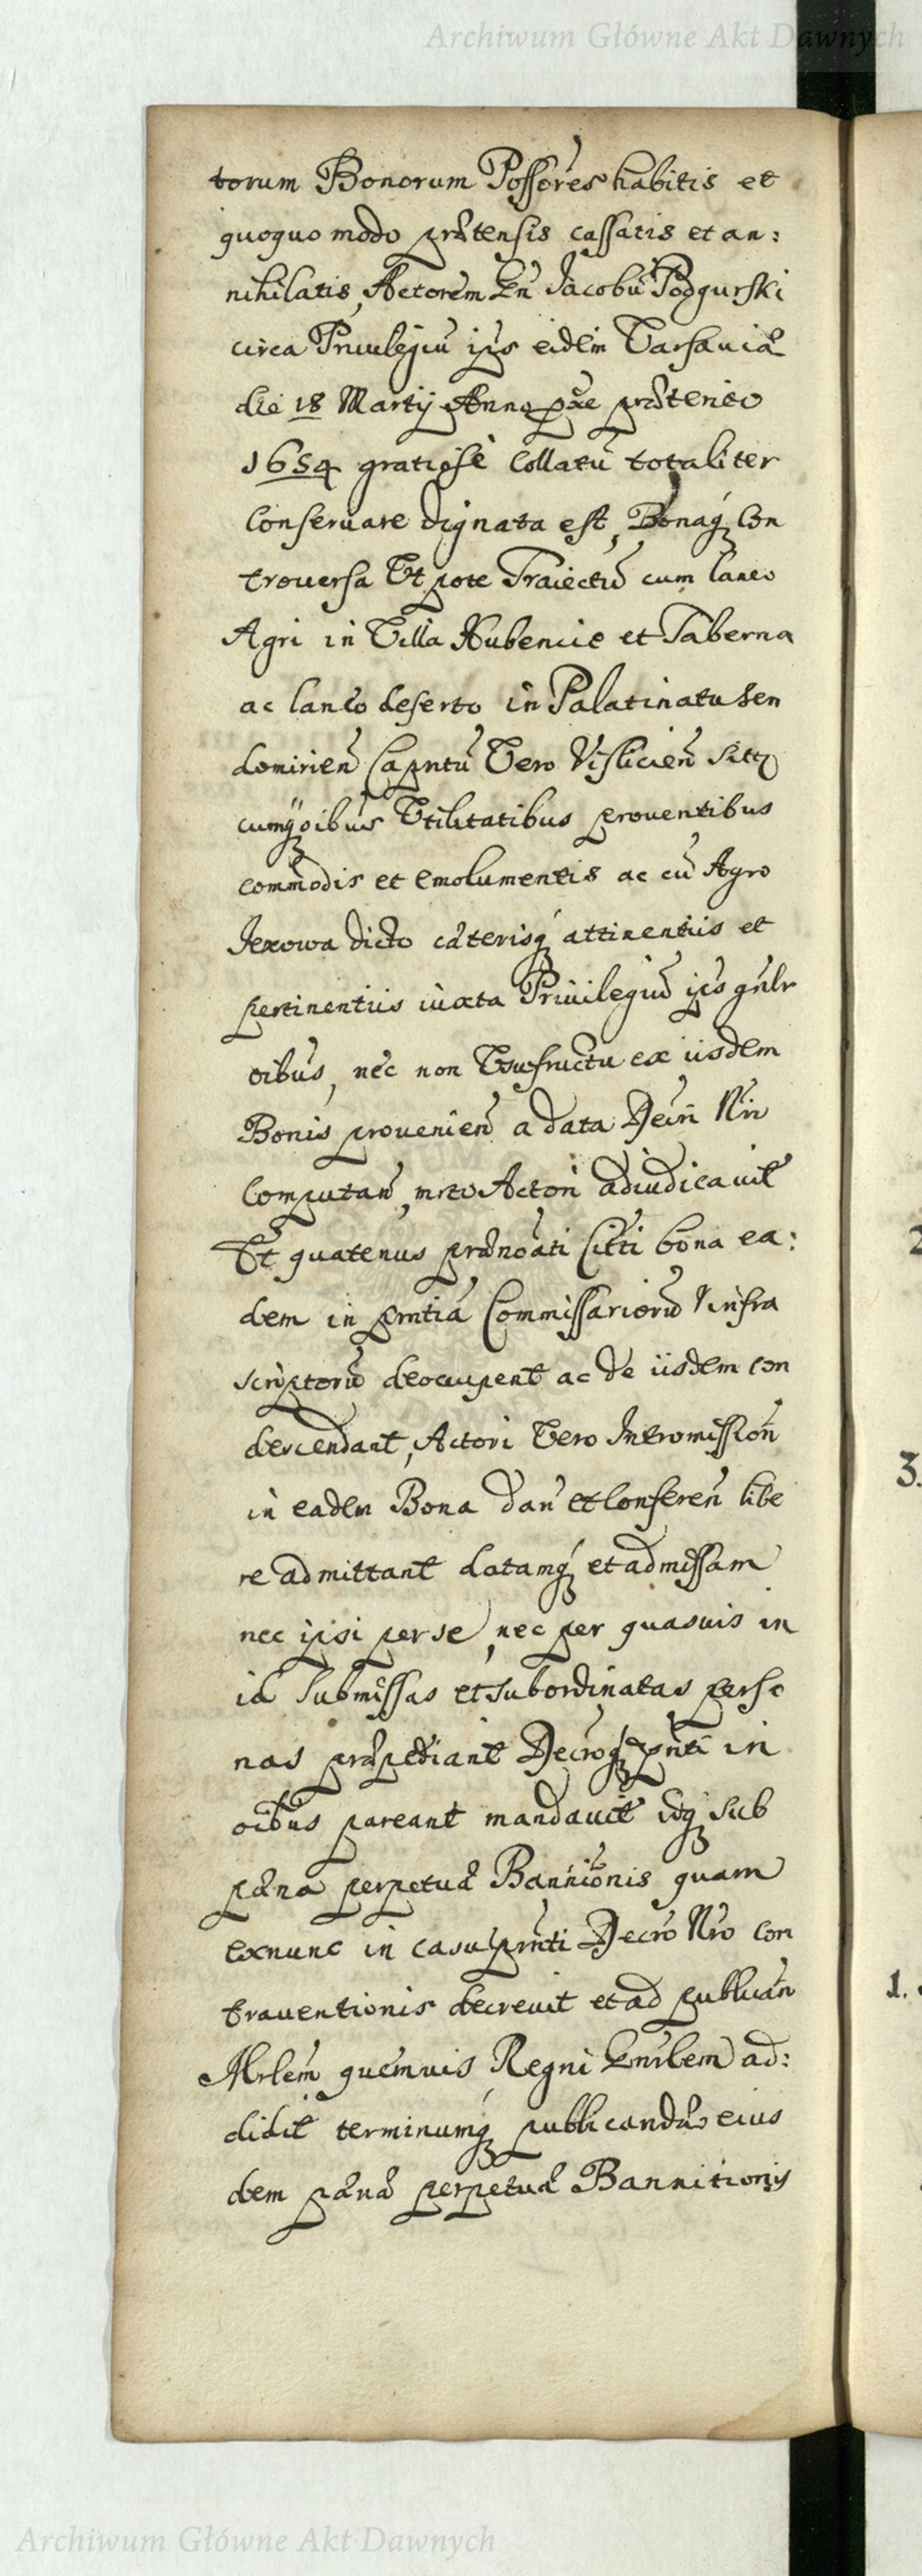 Archiwum Główne Akt Dawnych
torum Bonorum Possores habitis et
quoquo modo prætensis cassatis et an:
nihilatis, Actorem Gn Jacobū Podgurski
circa Priuilegiū ips eidem Varsauiæ
die 18 Martij Anno pxe præterito
1654 gratiose Collatū totaliter
Conseruare dignata est, Bonaq Con
trouersa Vt pote Traiectū cum laneo
Agri in Villa Nubencie et Taberna
ac laneo deserto in Palatinatu Sen
domirien Capntū Vero Vislicien sitt
cumq oibus Vtilitatibus prouentibus
commodis et emolumentis ac cū Agro
Jexowa dicto cæterisq attinentiis et
pertinentiis iuxta Priuilegiū ips gnlr
oibus, nec non Vsufructu ex iisdem
Bonis prouenien a data Decri Nri
Computan, mrto Actori adiudicauit
Et quatenus prænoāti Citti bona ea:
dem in pntia Commissariorū infra
scriptorū deoccupent ac de iisdem con
descendant, Actori Vero Intromission
in eadem Bona dan et Conferen libe
re admittant datamq et admissam
nec ipsi per se, nec per quasuis in
id submissas et subordinatas perso
nas præpediant Decroq pnti in
oibus pareant mandauit idq sub
pæna perpetuæ Bannionis quam
exnunc in casu pnti Decro Nro con
trauentionis decreuit et ad publican
Mrlem quemuis Regni Gnrlem ad:
didit terminumq publicandæ eius
dem pænæ perpetuæ Bannitionis
2
3.
1.
Archiwum Główne Akt Dawnych